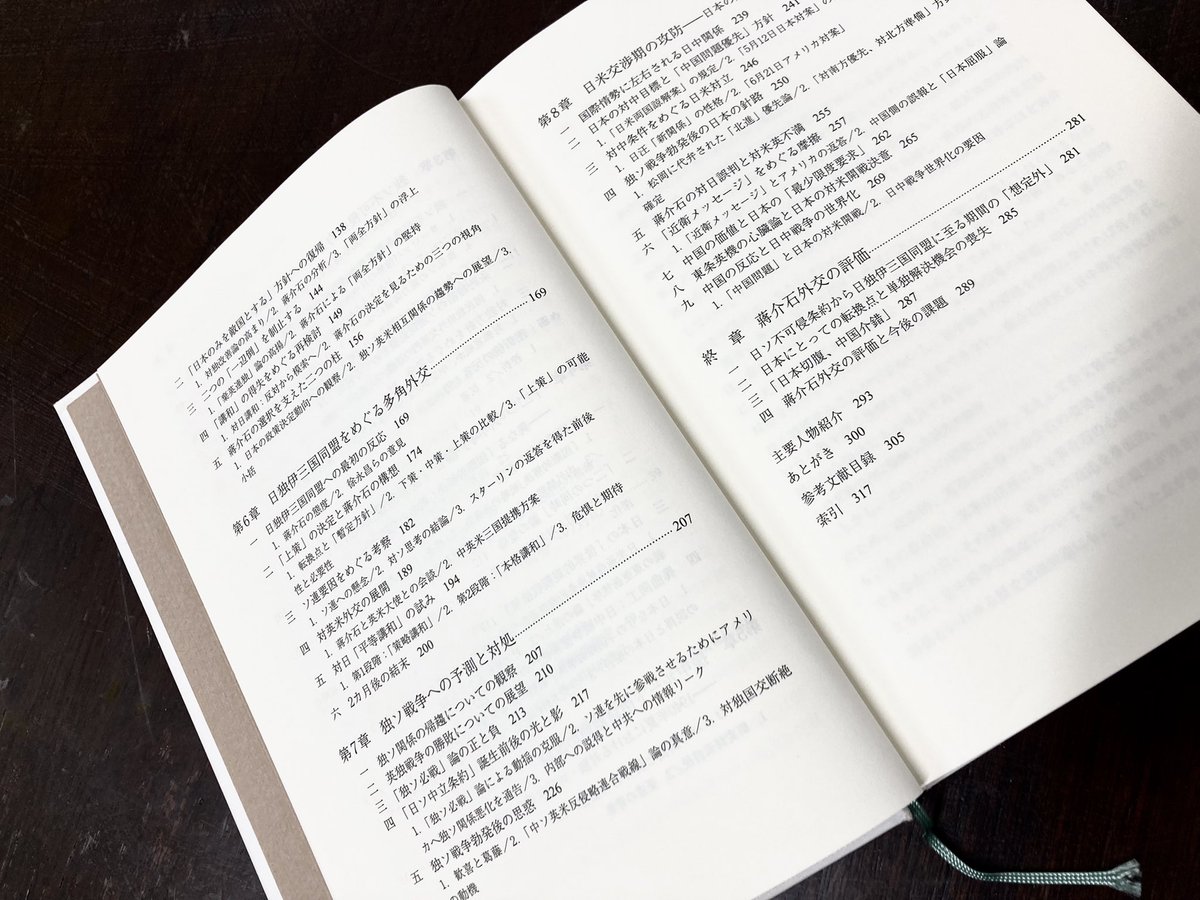 二 「日本のみを敵国とする」方針への復帰 138
1. 対独改善論の高まり/2. 蔣介石の分析/3. 「両全方針」の浮上
三 二つの「一辺倒」を制止する 144
1. 「棄英連独」論の高揚/2. 蔣介石による「両全方針」の堅持
四 「講和」の得失をめぐる再検討 149
1. 対日講和：反対から模索へ/2. 蔣介石の決定を見るための三つの視角
五 蔣介石の選択を支えた二つの柱 156
1. 日本の政策決定動向への観察/2. 独ソ英米相互関係の趨勢への展望/3.
小括
第6章 日独伊三国同盟をめぐる多角外交 169
一 日独伊三国同盟への最初の反応 169
1. 蔣介石の態度/2. 徐永昌らの意見
二 「上策」の決定と蔣介石の構想 174
1. 転換点と「暫定方針」/2. 下策・中策・上策の比較/3. 「上策」の可能
性と必要性
三 ソ連要因をめぐる考察 182
1. ソ連への懸念/2. 対ソ思考の結論/3. スターリンの返答を得た前後
四 対英米外交の展開 189
1. 蔣介石と英米大使との会談/2. 中英米三国提携方案
五 対日「平等講和」の試み 194
1. 第1段階：「策略講和」/2. 第2段階：「本格講和」/3. 危惧と期待
六 2カ月後の結末 200
第7章 独ソ戦争への予測と対処 207
一 独ソ関係の帰趨についての観察 207
二 英独戦争の勝敗についての展望 210
三 「独ソ必戦」論の正と負 213
四 「日ソ中立条約」誕生前後の光と影 217
1. 「独ソ必戦」論による動揺の克服/2. ソ連を先に参戦させるためにアメリ
カへ独ソ関係悪化を通告/3. 内部への説得と中共への情報リーク
五 独ソ戦争勃発後の思惑 226
1. 歓喜と葛藤/2. 「中ソ英米反侵略連合戦線」論の真意/3. 対独国交断絶
の動機
第8章 日米交渉期の攻防――日本の
一 国際情勢に左右される日中関係 239
二 日本の対中目標と「中国問題優先」方針 241
1. 「日米両国諒解案」の規定/2. 「5月12日日本対案」の
三 対中条件をめぐる日米対立 246
1. 日汪「新関係」の性格/2. 「6月21日アメリカ対案」
四 独ソ戦争勃発後の日本の針路 250
1. 松岡に代弁された「北進」優先論/2. 「対南方優先、対北方準備」方針
確定
五 蔣介石の対日誤判と対米英不満 255
六 「近衛メッセージ」をめぐる摩擦 257
1. 「近衛メッセージ」とアメリカの返答/2. 中国側の誤報と「日本屈服」論
七 中国の価値と日本の「最少限度要求」 262
八 東条英機の心臓論と日本の対米開戦決意 265
九 中国の反応と日中戦争の世界化 269
1. 「中国問題」と日本の対米開戦/2. 日中戦争世界化の要因
終 章 蔣介石外交の評価 281
一 日ソ不可侵条約から日独伊三国同盟に至る期間の「想定外」 281
二 日本にとっての転換点と単独解決機会の喪失 285
三 「日本切腹、中国介錯」 287
四 蔣介石外交の評価と今後の課題 289
主要人物紹介 293
あとがき 300
参考文献目録 305
索引 317